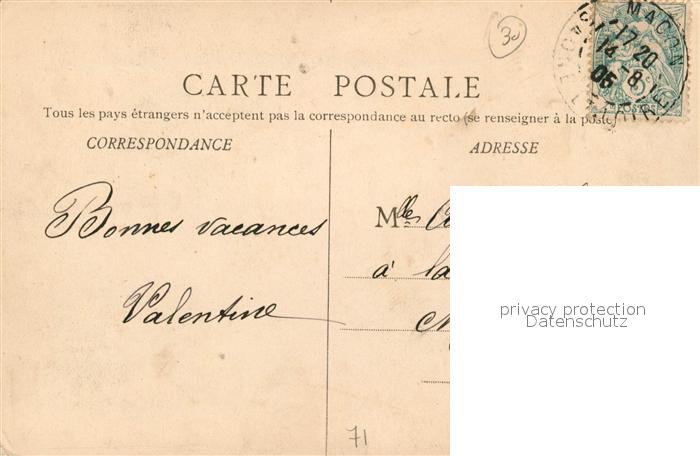 30
MACON
17 20
14 -8
06
CARTE POSTALE
Tous les pays étrangers n'acceptent pas la correspondance au recto (se renseigner à la poste)
CORRESPONDANCE
ADRESSE
Bonnes vacances
Valentine
Mlle
à la
privacy protection
Datenschutz
71